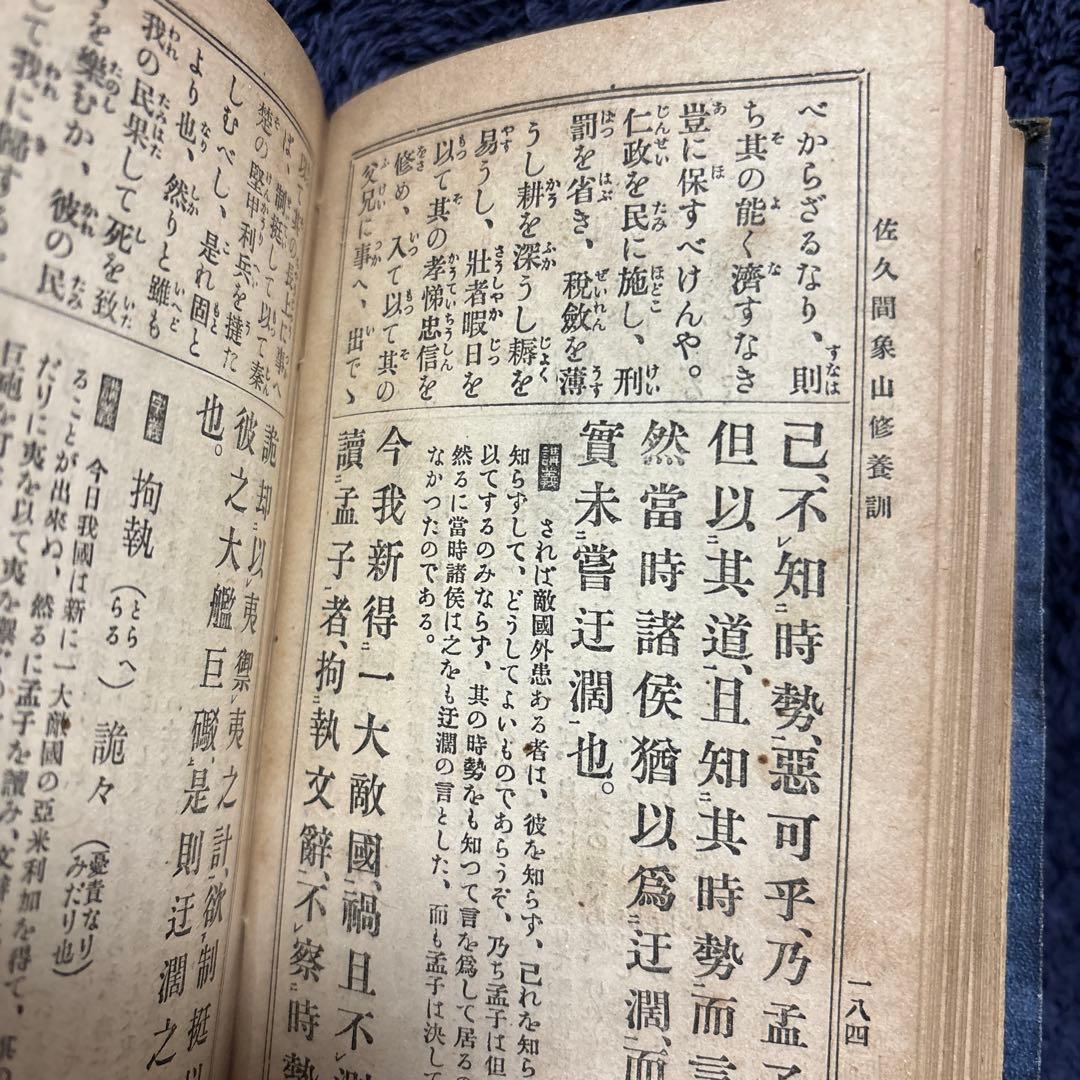 佐久間象山修養訓
一八四
べからざるなり、則
ち其の能く濟すなき
豈に保すべけんや。
仁政を民に施し、刑
罰を省き、税斂を薄
うし耕を深うし耨を
易うし、壯者暇日を
以て其の孝悌忠信を
修め、入て以て其の
父兄に事へ、出でゝ
己、不知時勢、惡可乎、乃孟
但以其道、且知其時勢而言
然當時諸侯猶以爲迂濶、而
實未嘗迂濶也。
講義 されば敵國外患ある者は、彼を知らず、己れを知ら
知らずして、どうしてよいものであらうぞ、乃ち孟子は但
以てするのみならず、其の時勢をも知つて言を爲して居るの
然るに當時諸侯は之をも迂濶の言とした、而も孟子は決して
なかつたのである。
今我新得一大敵國、禍且不
讀孟子者、拘執文辭、不察時勢
の長上に事へ
ば、制挺して以て秦
楚の堅甲利兵を撻た
しむべし、是れ固と
より也、然りと雖も
我の民果して死を致
を樂むか、彼の民
て我に歸する
詭却以夷禦夷之計、欲制挺以
彼之大艦巨礮、是則迂濶之
也。
字義 拘執(とらへらる) 詭々(憂貴なりみだり也)
講義 今日我國は新に一大敵國の亞米利加を得て、
ることが出來ぬ、然るに孟子を讀み、文
だりに夷を以て夷を
巨砲を打